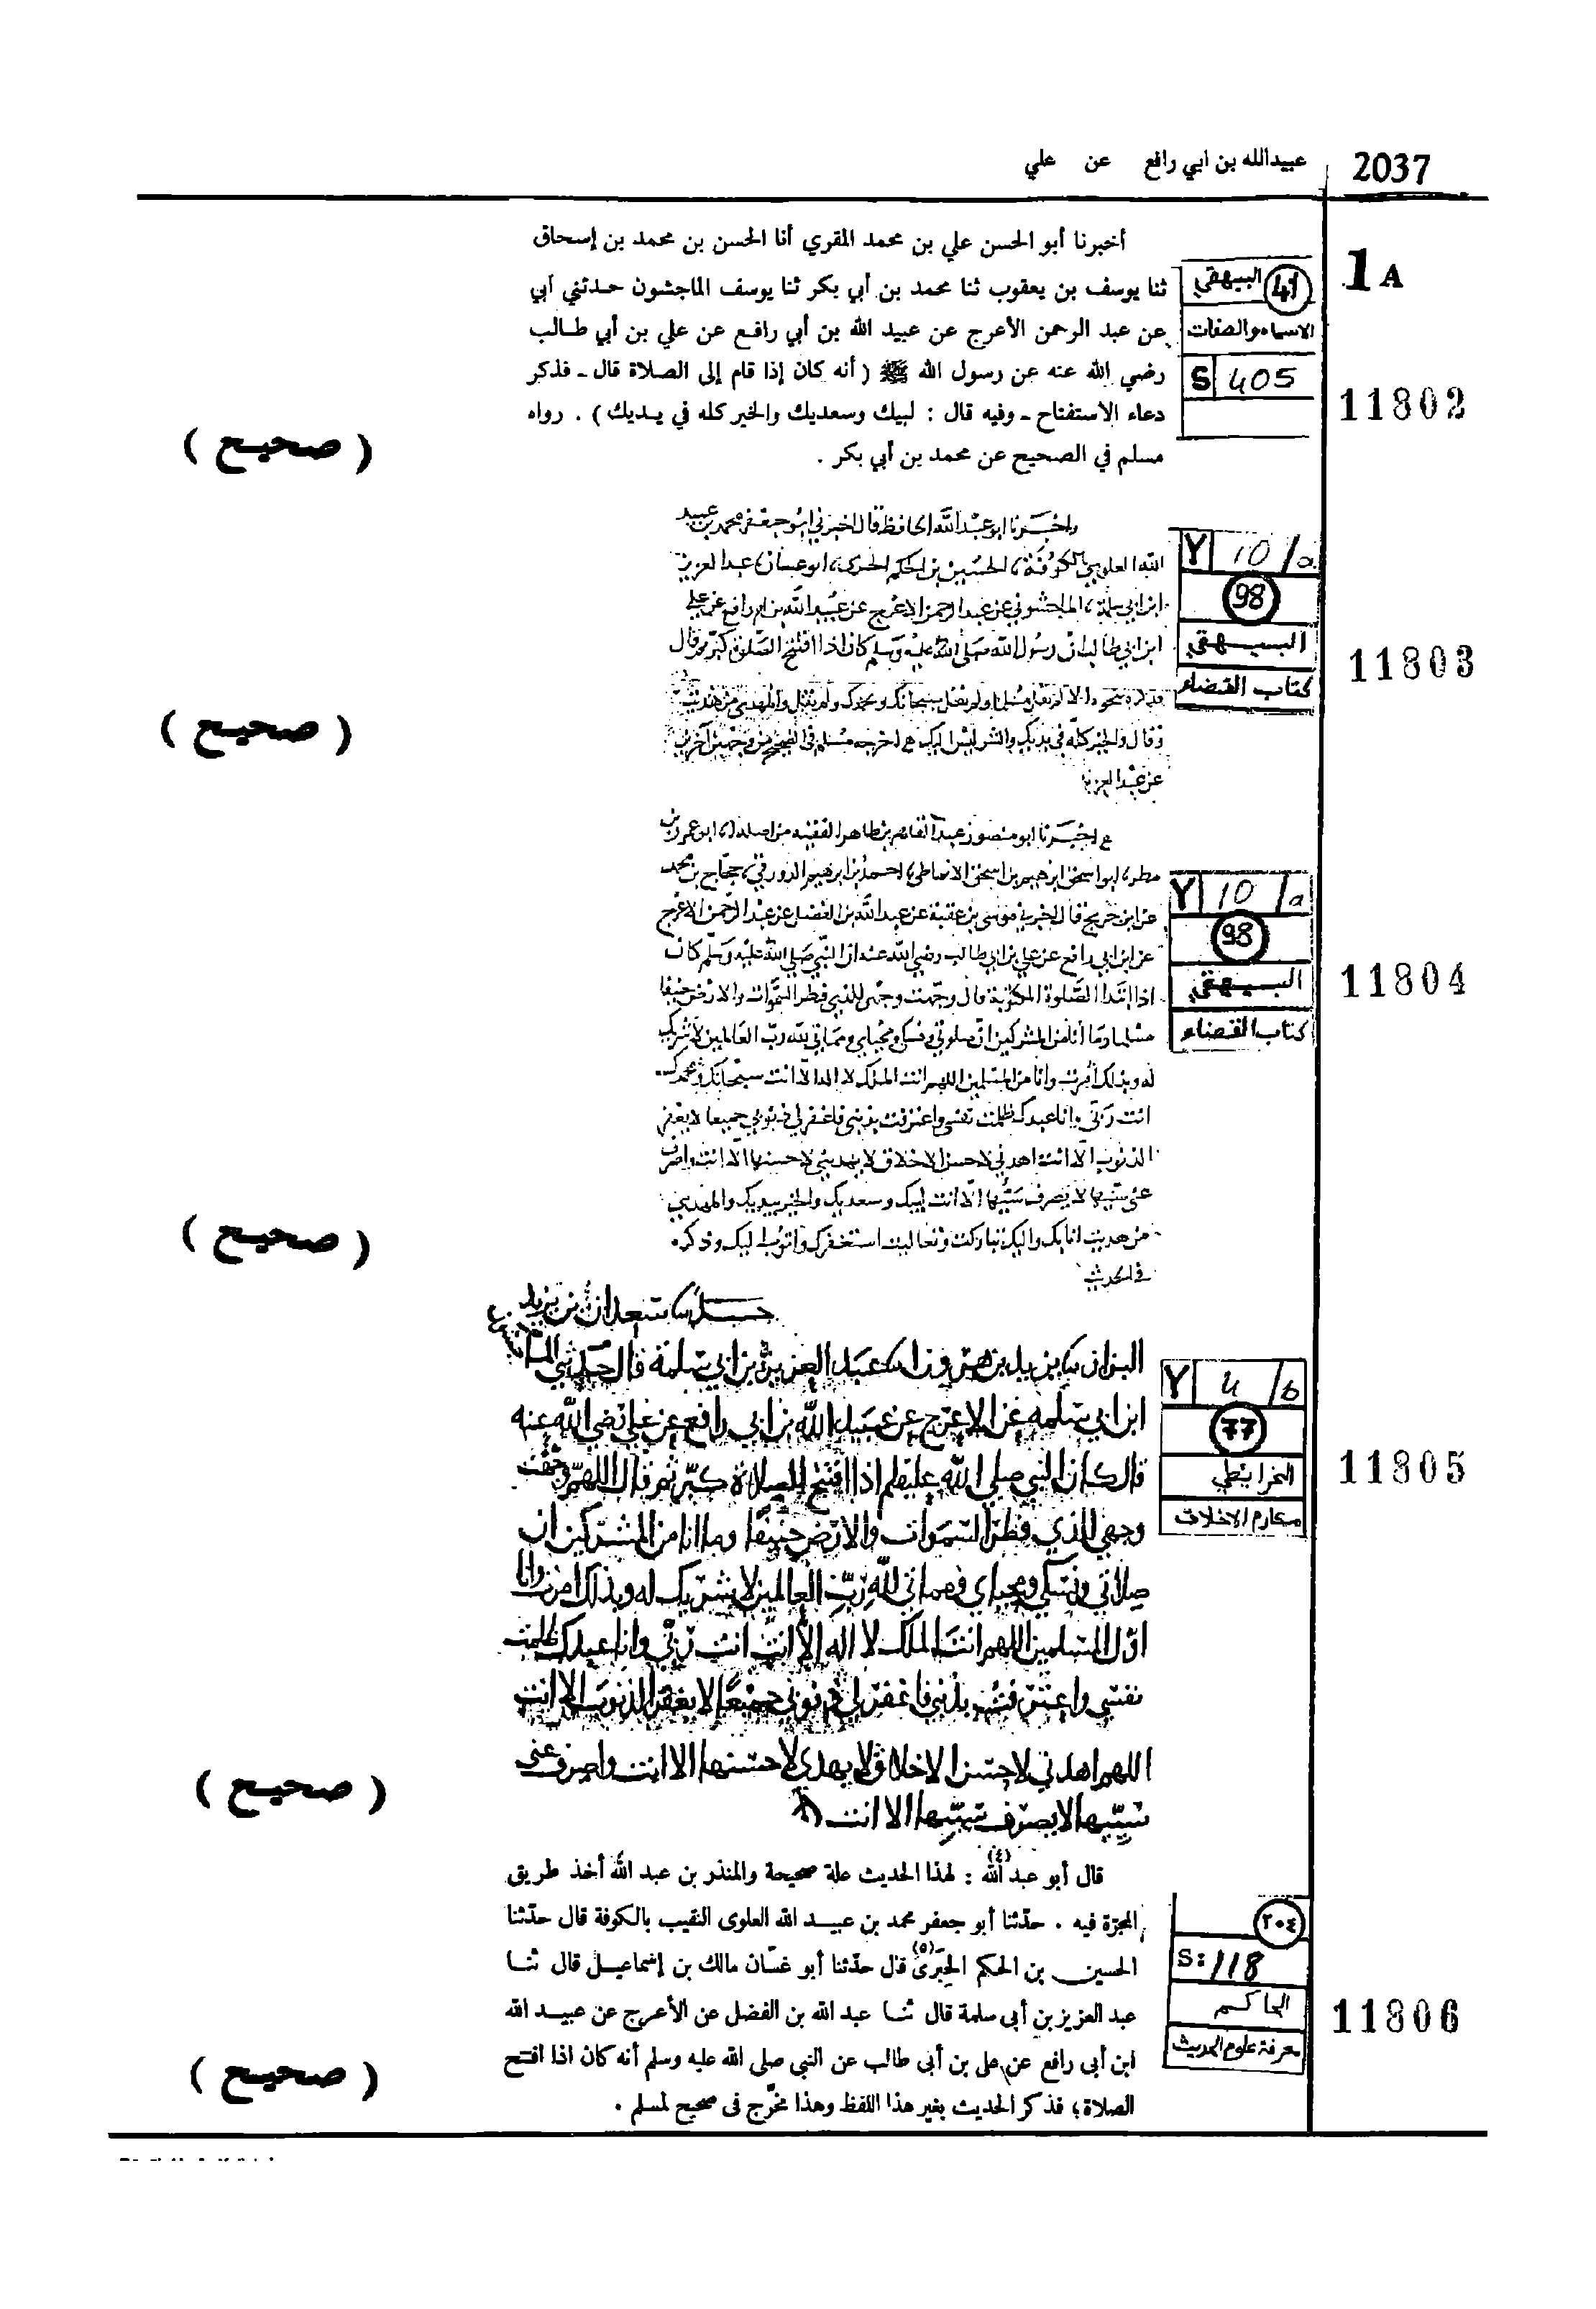 2037
عبيدالله بن ابي رافع عن علي
1A
11802
41 البيهقي
الاسماء والصفات
S 405
أخبرنا أبو الحسن علي بن محمد المقري أنا الحسن بن محمد بن إسحاق
ثنا يوسف بن يعقوب ثنا محمد بن أبي بكر ثنا يوسف الماجشون حدثني أبي
عن عبد الرحمن الأعرج عن عبيد الله بن أبي رافع عن علي بن أبي طالب
رضي الله عنه عن رسول الله ﷺ ( أنه كان إذا قام إلى الصلاة قال ـ فذكر
دعاء الاستفتاح ـ وفيه قال : لبيك وسعديك والخير كله في يديك ) . رواه
مسلم في الصحيح عن محمد بن أبي بكر .
( صحيح )
11803
Y 10/a
98
البيهقي
كتاب القضاء
واخبرنا ابو عبد الله الحافظ قال اخبرني ابو جعفر محمد بن عبيد
الله العلوي بالكوفة الحسين بن الحكم ابو غسان عبد العزيز
ابن ابي سلمة الماجشوني عن عبد الرحمن الاعرج عن عبيد الله بن ابي رافع عن علي
ابن ابي طالب ان رسول الله صلى الله عليه وسلم كان اذا افتتح الصلوة كبر ثم قال
الا انه لم يقل مسلما ولم يقل سبحانك وبحمدك ولم يقل والمهدي من هديت
وقال والخير كله في يديك والشر ليس اليك اخرجه مسلم في الصحيح من وجهين آخرين
عن عبد العزيز
( صحيح )
11804
Y 10/a
98
البيهقي
كتاب القضاء
اخبرنا ابو منصور عبد القاهر بن طاهر الفقيه من اصله ابو عمرو بن
مطر ابو اسحق ابرهيم بن اسحق الانماطي احمد بن ابرهيم الدورقي حجاج بن محمد
عن ابن جريج قال اخبرني موسى بن عقبة عن عبد الله بن الفضل عن عبد الرحمن الاعرج
عن ابن ابي رافع عن علي بن ابي طالب رضي الله عنه ان النبي صلى الله عليه وسلم كان
اذا ابتدا الصلوة المكتوبة قال وجهت وجهي للذي فطر السموات والارض حنيفا
مسلما وما انا من المشركين ان صلوتي ونسكي ومحياي ومماتي لله رب العالمين لا شريك
له وبذلك امرت وانا من المسلمين اللهم انت الملك لا اله الا انت سبحانك وبحمدك
انت ربي وانا عبدك ظلمت نفسي واعترفت بذنبي فاغفر لي ذنوبي جميعا لا يغفر
الذنوب الا انت اهدني لاحسن الاخلاق لا يهديني لاحسنها الا انت واصرف
عني سيئها لا يصرف سيئها الا انت لبيك وسعديك والخير بيديك والمهدي
من هديت انا بك واليك تباركت وتعاليت استغفرك واتوب اليك وذكر
في الحديث
( صحيح )
11805
Y 4/b
77
الخرائطي
مكارم الاخلاق
حدثنا سعدان بن يزيد
البزاز يزيد بن هرون عبد العزيز بن ابي سلمة قال حدثني الماجشون
ابن ابي سلمه عن الاعرج عن عبيد الله بن ابي رافع عن علي رضي الله عنه
قال كان النبي صلى الله عليه وسلم اذا افتتح الصلاة كبر ثم قال اللهم وجهت
وجهي للذي فطر السموات والارض حنيفا وما انا من المشركين ان
صلاتي ونسكي ومحياي ومماتي لله رب العالمين لا شريك له وبذلك امرت وانا
اول المسلمين اللهم انت الملك لا اله الا انت انت ربي وانا عبدك ظلمت
نفسي واعترفت بذنبي فاغفر لي ذنوبي جميعا لا يغفر الذنوب الا انت
اللهم اهدني لاحسن الاخلاق لا يهدي لاحسنها الا انت واصرف عني
سيئها لا يصرف سيئها الا انت
( صحيح )
11806
٢٠٤
S: 118
الحاكم
معرفة علوم الحديث
قال أبو عبد الله (٤) : لهذا الحديث علة صحيحة والمنذر بن عبد الله أخذ طريق
المجرّة فيه . حدّثنا أبو جعفر محمد بن عبيد الله العلوى النقيب بالكوفة قال حدّثنا
الحسين بن الحكم الحِبَرىّ (٥) قال حدّثنا أبو غسّان مالك بن إسماعيل قال ثنا
عبد العزيز بن أبى سلمة قال ثنا عبد الله بن الفضل عن الأعرج عن عبيد الله
ابن أبى رافع عن على بن أبى طالب عن النبي صلى الله عليه وسلم أنه كان اذا افتتح
الصلاة؛ فذكر الحديث بغير هذا اللفظ وهذا مخرّج فى صحيح لمسلم .
( صحيح )